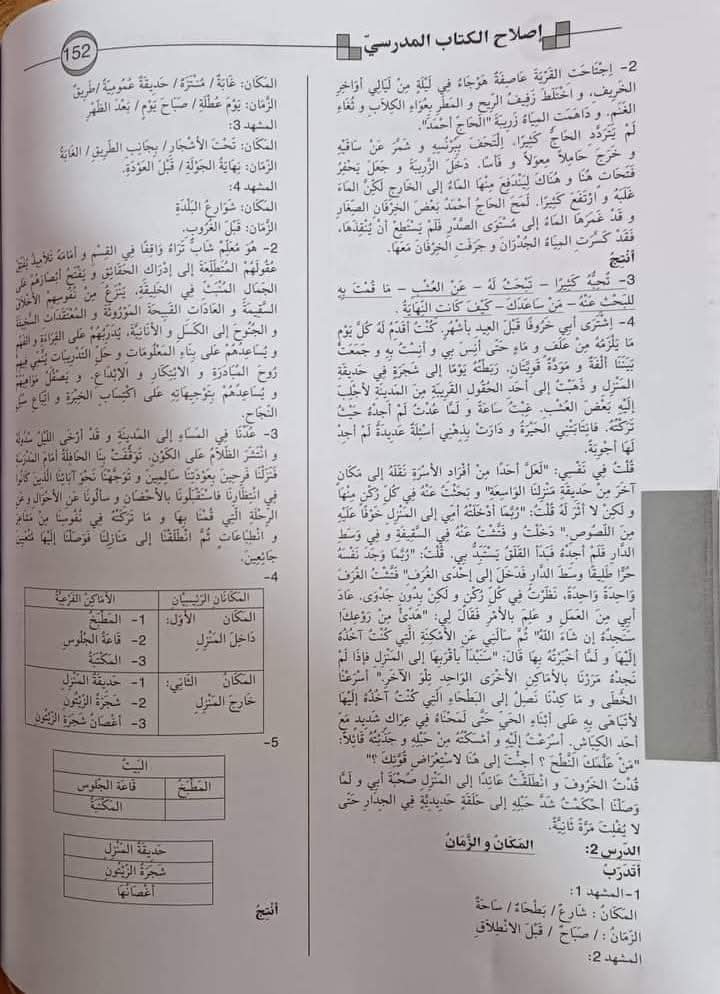 إصلاح الكتاب المدرسيّ
152
2- اِجْتَاحَتِ القَرْيَةَ عَاصِفَةٌ هَوْجَاءُ فِي لَيْلَةٍ مِنْ لَيَالِي أَوَاخِرِ
الخَرِيفِ، و اخْتَلَطَ زَفِيفُ الرِّيحِ و المَطَرِ بِعُوَاءِ الكِلَابِ و ثُغَاءِ
الغَنَمِ. و دَاهَمَتِ المِيَاهُ زَرِيبَةَ "الحَاجِّ أَحْمَدَ".
لَمْ يَتَرَدَّدِ الحَاجُّ كَثِيرًا. اِلْتَحَفَ بِبُرْنُسِهِ و شَمَّرَ عَنْ سَاقَيْهِ
و خَرَجَ حَامِلًا مِعْوَلًا و فَأْسًا. دَخَلَ الزَّرِيبَةَ و جَعَلَ يَحْفِرُ
فَتَحَاتٍ هُنَا و هُنَاكَ لِيَنْدَفِعَ مِنْهَا المَاءُ إِلَى الخَارِجِ لَكِنَّ المَاءَ
غَلَبَهُ و ارْتَفَعَ كَثِيرًا. لَمَحَ الحَاجُّ أَحْمَدُ بَعْضَ الخِرْفَانِ الصِّغَارِ
و قَدْ غَمَرَهَا المَاءُ إِلَى مُسْتَوَى الصَّدْرِ فَلَمْ يَسْتَطِعْ أَنْ يُنْقِذَهَا،
فَقَدْ كَسَّرَتِ المِيَاهُ الجُدْرَانَ و جَرَفَتِ الخِرْفَانَ مَعَهَا.
أُنْتِجُ
3- تُحِبُّهُ كَثِيرًا – تَبْحَثُ لَهُ – عَنِ العُشْبِ – مَا قُمْتَ بِهِ
لِلْبَحْثِ عَنْهُ – مَنْ سَاعَدَكَ – كَيْفَ كَانَتِ النِّهَايَةُ.
4- اِشْتَرَى أَبِي خَرُوفًا قَبْلَ العِيدِ بِأَشْهُرٍ. كُنْتُ أُقَدِّمُ لَهُ كُلَّ يَوْمٍ
مَا يَلْزَمُهُ مِنْ عَلَفٍ و مَاءٍ حَتَّى أَنِسَ بِي و أَنِسْتُ بِهِ و جَمَعَتْ
بَيْنَنَا أُلْفَةٌ و مَوَدَّةٌ قَوِيَّتَانِ. رَبَطْتُهُ يَوْمًا إِلَى شَجَرَةٍ فِي حَدِيقَةِ
المَنْزِلِ و ذَهَبْتُ إِلَى أَحَدِ الحُقُولِ القَرِيبَةِ مِنَ المَدِينَةِ لِأَجْلِبَ
إِلَيْهِ بَعْضَ العُشْبِ. غِبْتُ سَاعَةً و لَمَّا عُدْتُ لَمْ أَجِدْهُ حَيْثُ
تَرَكْتُهُ. فَانْتَابَتْنِي الحَيْرَةُ و دَارَتْ بِذِهْنِي أَسْئِلَةٌ عَدِيدَةٌ لَمْ أَجِدْ
لَهَا أَجْوِبَةً.
قُلْتُ فِي نَفْسِي: "لَعَلَّ أَحَدًا مِنْ أَفْرَادِ الأُسْرَةِ نَقَلَهُ إِلَى مَكَانٍ
آخَرَ مِنْ حَدِيقَةِ مَنْزِلِنَا الوَاسِعَةِ" و بَحَثْتُ عَنْهُ فِي كُلِّ رُكْنٍ مِنْهَا
و لَكِنْ لَا أَثَرَ لَهُ قُلْتُ: "رُبَّمَا أَدْخَلَتْهُ أُمِّي إِلَى المَنْزِلِ خَوْفًا عَلَيْهِ
مِنَ اللُّصُوصِ." دَخَلْتُ و فَتَّشْتُ عَنْهُ فِي السَّقِيفَةِ و فِي وَسَطِ
الدَّارِ فَلَمْ أَجِدْهُ فَبَدَأَ القَلَقُ يَسْتَبِدُّ بِي. قُلْتُ: "رُبَّمَا وَجَدَ نَفْسَهُ
حُرًّا طَلِيقًا وَسَطَ الدَّارِ فَدَخَلَ إِلَى إِحْدَى الغُرَفِ" فَتَّشْتُ الغُرَفَ
وَاحِدَةً وَاحِدَةً، نَظَرْتُ فِي كُلِّ رُكْنٍ و لَكِنْ بِدُونِ جَدْوَى. عَادَ
أَبِي مِنَ العَمَلِ و عَلِمَ بِالأَمْرِ فَقَالَ لِي: "هَدِّئْ مِنْ رَوْعِكَ!
سَنَجِدُهُ إِنْ شَاءَ اللهُ" ثُمَّ سَأَلَنِي عَنِ الأَمْكِنَةِ الَّتِي كُنْتُ آخُذُهُ
إِلَيْهَا و لَمَّا أَخْبَرْتُهُ بِهَا قَالَ: "سَنَبْدَأُ بِأَقْرَبِهَا إِلَى المَنْزِلِ فَإِذَا لَمْ
نَجِدْهُ مَرَرْنَا بِالأَمَاكِنِ الأُخْرَى الوَاحِدِ تِلْوَ الآخَرِ." أَسْرَعْنَا
الخُطَى و مَا كِدْنَا نَصِلُ إِلَى البَطْحَاءِ الَّتِي كُنْتُ آخُذُهُ إِلَيْهَا
لِأَتَبَاهَى بِهِ عَلَى أَبْنَاءِ الحَيِّ حَتَّى لَمَحْنَاهُ فِي عِرَاكٍ شَدِيدٍ مَعَ
أَحَدِ الكِبَاشِ. أَسْرَعْتُ إِلَيْهِ و أَمْسَكْتُهُ مِنْ حَبْلِهِ و جَذَبْتُهُ قَائِلًا:
"مَنْ عَلَّمَكَ النَّطْحَ ؟ أَجِئْتَ إِلَى هُنَا لِاسْتِعْرَاضِ قُوَّتِكَ ؟"
قُدْتُ الخَرُوفَ و انْطَلَقْتُ عَائِدًا إِلَى المَنْزِلِ صُحْبَةَ أَبِي و لَمَّا
وَصَلْنَا أَحْكَمْتُ شَدَّ حَبْلِهِ إِلَى حَلْقَةٍ حَدِيدِيَّةٍ فِي الجِدَارِ حَتَّى
لَا يُفْلِتَ مَرَّةً ثَانِيَةً.
الدّرس 2: المَكَانُ و الزَّمَانُ
أَتَدَرَّبُ
1-المشهد 1:
المَكَانُ : شَارِعٌ / بَطْحَاءُ / سَاحَةٌ
الزَّمَانُ : / صَبَاحٌ / قَبْلَ الاِنْطِلَاقِ
المشهد 2:
المَكَانُ: غَابَةٌ / مُنْتَزَهٌ / حَدِيقَةٌ عُمُومِيَّةٌ /طَرِيقٌ
الزَّمَانُ: يَوْمُ عُطْلَةٍ / صَبَاحَ يَوْمٍ / بَعْدَ الظُّهْرِ
المشهد 3:
المَكَانُ: تَحْتَ الأَشْجَارِ / بِجَانِبِ الطَّرِيقِ / الغَابَةُ
الزَمَانُ: نِهَايَةُ الجَوْلَةِ / قَبْلَ العَوْدَةِ.
المشهد 4:
المَكَانُ: شَوَارِعُ البَلْدَةِ
الزَّمَانُ: قَبْلَ الغُرُوبِ.
2- هُوَ مُعَلِّمٌ شَابٌّ تَرَاهُ وَاقِفًا فِي القِسْمِ و أَمَامَهُ تَلَامِيذُ
عُقُولَهُمُ المُتَطَلِّعَةَ إِلَى إِدْرَاكِ الحَقَائِقِ و يَفْتَحُ أَبْصَارَهُمْ عَلَى
الجَمَالِ المُنْبَثِّ فِي الخَلِيقَةِ. يَنْزِعُ مِنْ نُفُوسِهِمُ الأَخْلَاقَ
السَّقِيمَةَ و العَادَاتِ القَبِيحَةَ المَوْرُوثَةَ و المُعْتَقَدَاتِ السَّخِيفَةَ
و الجُنُوحَ إِلَى الكَسَلِ و الأَنَانِيَّةَ. يُدَرِّبُهُمْ عَلَى القِرَاءَةِ و الفَهْمِ
و يُسَاعِدُهُمْ عَلَى بِنَاءِ المَعْلُومَاتِ و حَلِّ التَّدْرِيبَاتِ يُنَمِّي فِيهِمْ
رُوحَ المُبَادَرَةِ و الاِبْتِكَارِ و الإِبْدَاعِ. و يَصْقُلُ مَوَاهِبَهُمْ
و يُسَاعِدُهُمْ بِتَوْجِيهَاتِهِ عَلَى اكْتِسَابِ الخِبْرَةِ و اتِّبَاعِ سُبُلِ
النَّجَاحِ.
3- عُدْنَا فِي المَسَاءِ إِلَى المَدِينَةِ و قَدْ أَرْخَى اللَّيْلُ سُدُولَهُ
و انْتَشَرَ الظَّلَامُ عَلَى الكَوْنِ. تَوَقَّفَتْ بِنَا الحَافِلَةُ أَمَامَ المَدْرَسَةِ
فَنَزَلْنَا فَرِحِينَ بِعَوْدَتِنَا سَالِمِينَ و تَوَجَّهْنَا نَحْوَ آبَائِنَا الَّذِينَ كَانُوا
فِي انْتِظَارِنَا فَاسْتَقْبَلُونَا بِالأَحْضَانِ و سَأَلُونَا عَنِ الأَحْوَالِ و عَنِ
الرِّحْلَةِ الَّتِي قُمْنَا بِهَا و مَا تَرَكَتْهُ فِي نُفُوسِنَا مِنْ مَشَاعِرَ
و انْطِبَاعَاتٍ ثُمَّ انْطَلَقْنَا إِلَى مَنَازِلِنَا فَوَصَلْنَا إِلَيْهَا مُتْعَبِينَ
جَائِعِينَ.
4-
المَكَانَانِ الرَّئِيسِيَّانِ الأَمَاكِنُ الفَرْعِيَّةُ
المَكَانُ الأَوَّلُ: 1- المَطْبَخُ
دَاخِلَ المَنْزِلِ 2- قَاعَةُ الجُلُوسِ
3- المَكْتَبَةُ
المَكَانُ الثَّانِي: 1- حَدِيقَةُ المَنْزِلِ
خَارِجَ المَنْزِلِ 2- شَجَرَةُ الزَّيْتُونِ
3- أَغْصَانُ شَجَرَةِ الزَّيْتُونِ
5-
البَيْتُ
المَطْبَخُ قَاعَةُ الجُلُوسِ
المَكْتَبَةُ
حَدِيقَةُ المَنْزِلِ
شَجَرَةُ الزَّيْتُونِ
أَغْصَانُهَا
أُنْتِجُ